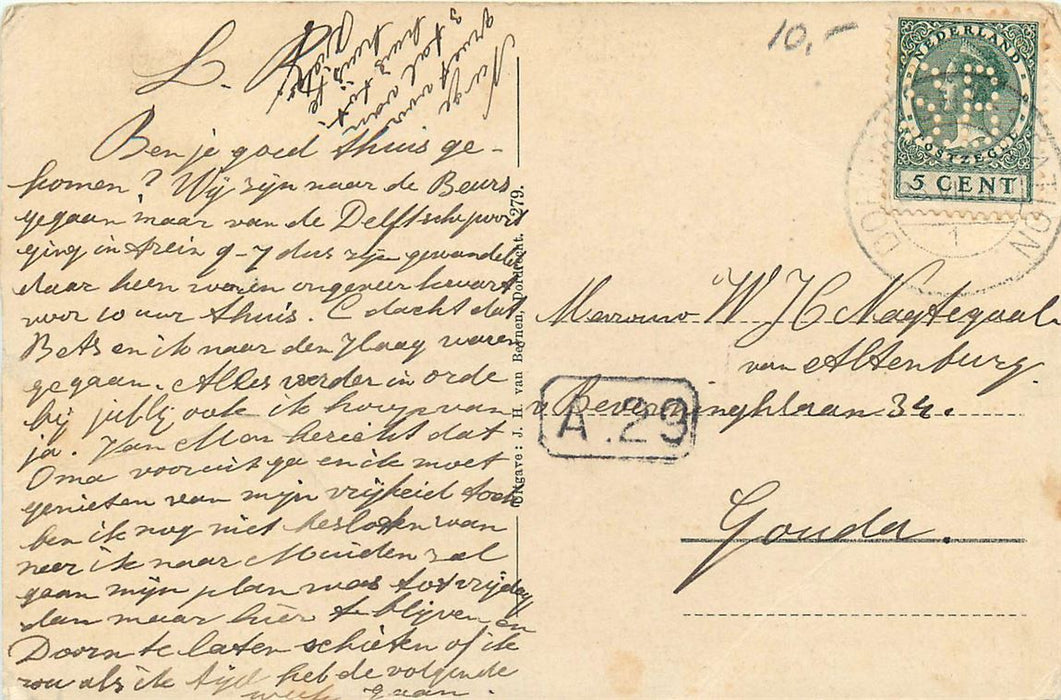 L. R.
Ben je goed thuis ge-
komen? Wij zijn naar de Beurs
gegaan maar van de Delftschepoort
ging in trein 9-7 dus zijn gewandeld
daar heen waren ongeveer kwart
voor 10 uur thuis. C dacht dat
Bets en ik naar den Haag waren
gegaan. Alles verder in orde
bij jullij ook ik hoop van
ja. Van Mon bericht dat
Oma vooruit ga en ik moet
genieten van mijn vrijheid toch
ben ik nog niet besloten wan
neer ik naar Muiden zal
gaan mijn plan was tot vrijdag
dan maar hier te blijven en
Doorn te laten schieten of ik
zou als ik tijd heb de volgende
week gaan.
groet
van
huis tot
huis
Uitgave: J. H. van Beijnen, Dordrecht. 279.
10,-
NEDERLAND
POSTZEGEL
5 CENT
Mevrouw W J H Nagtegaal
van Altenburg.
v. Beverninghlaan 34.
A.29
Gouda.